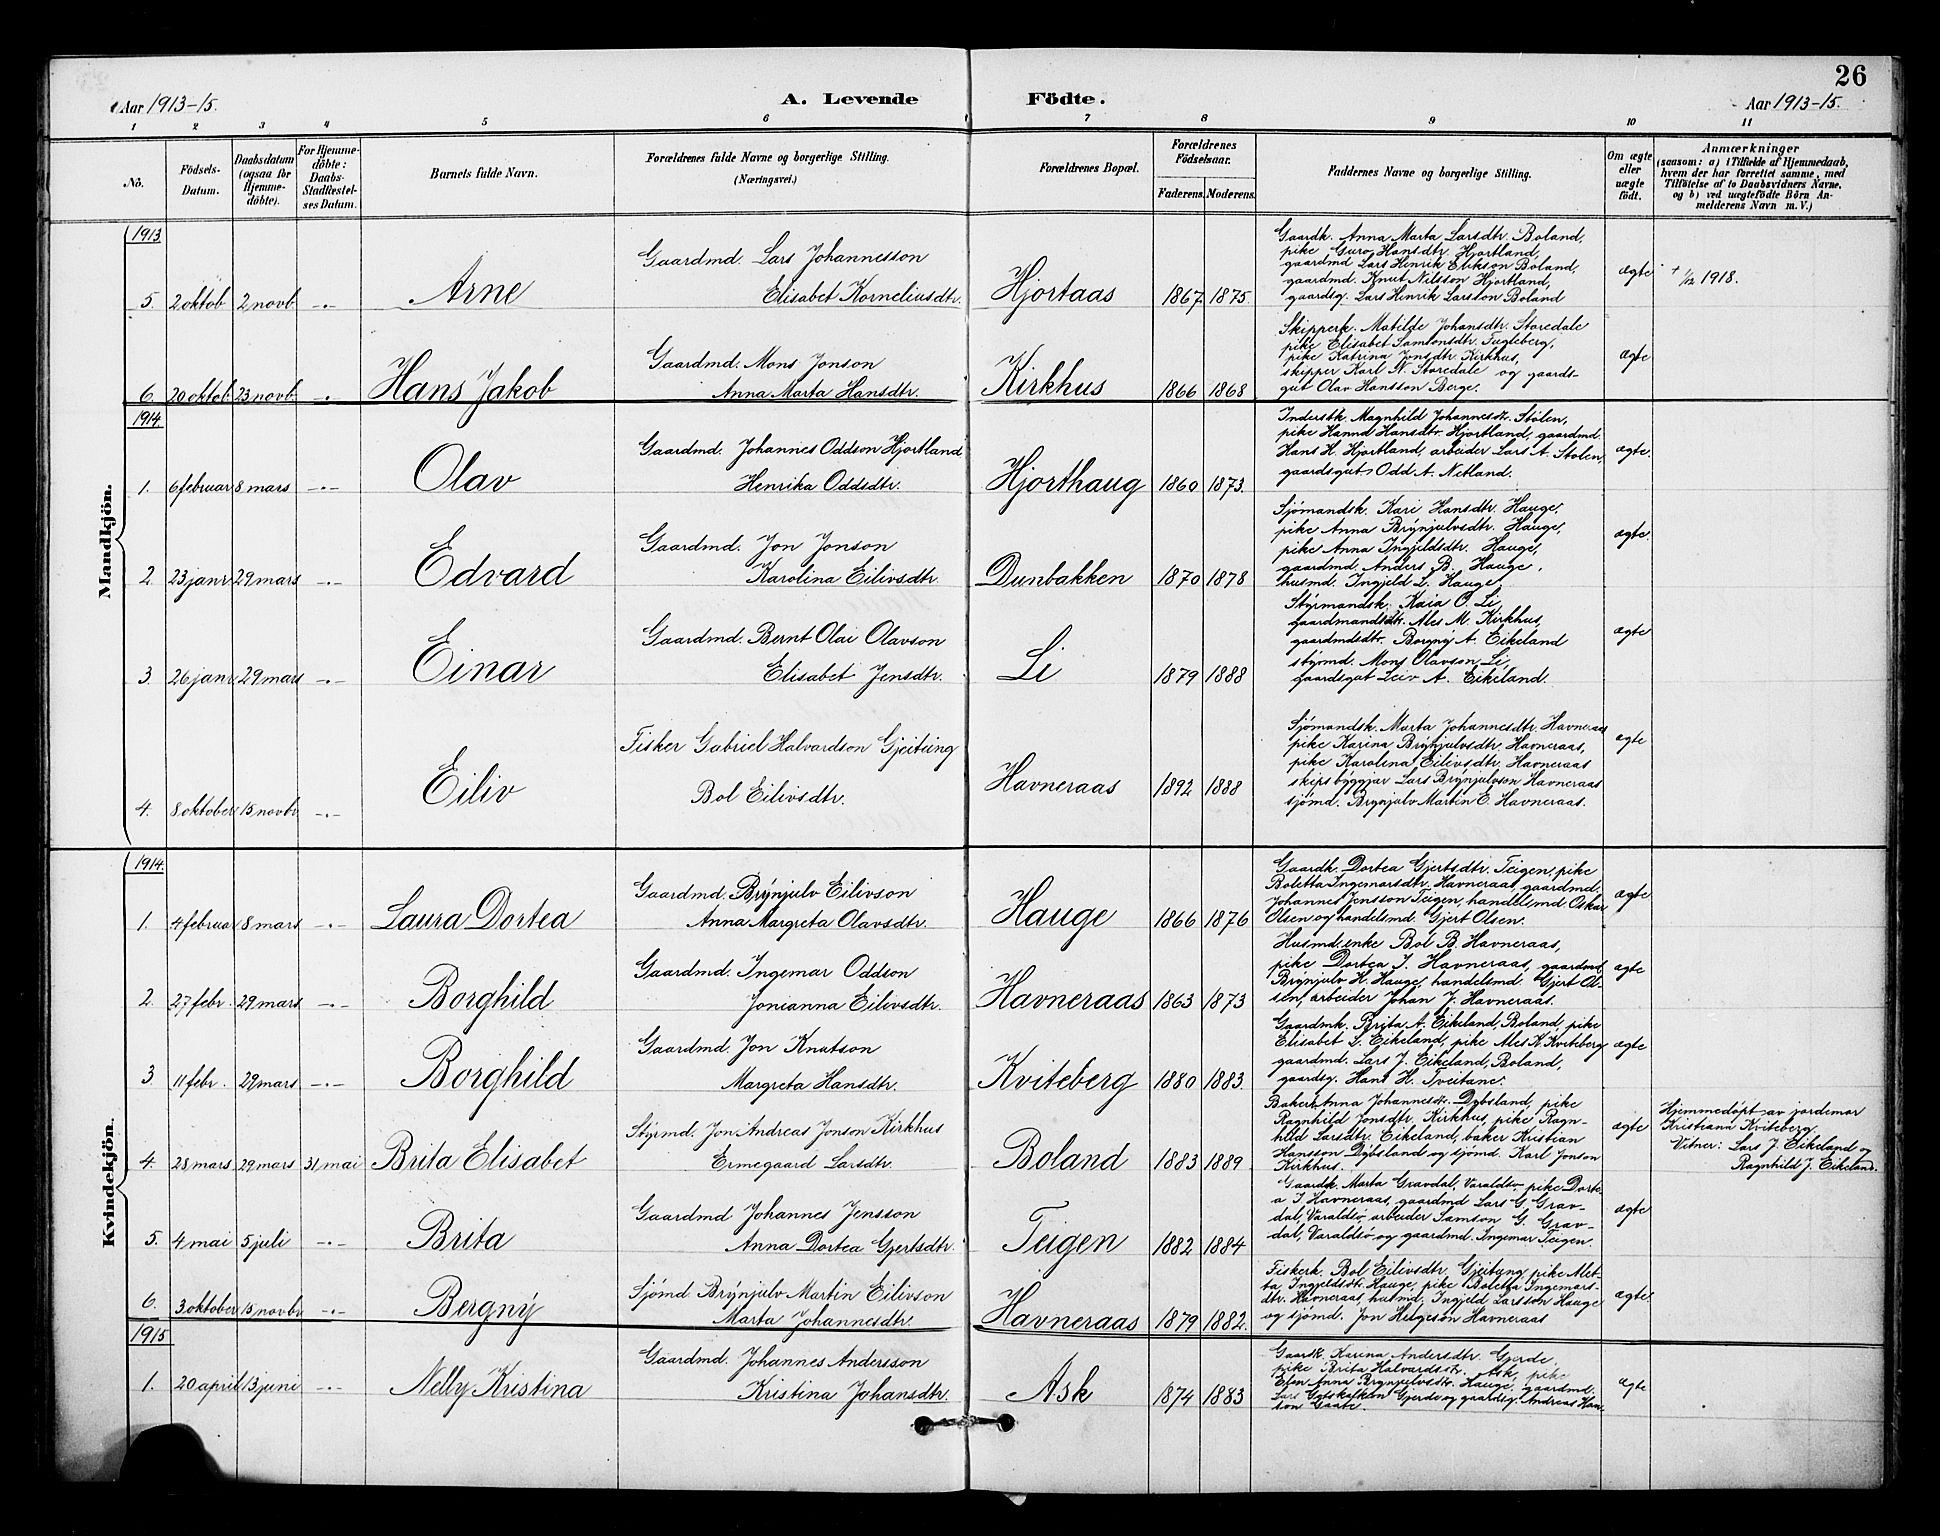 26
Aar 1913-15.
A. Levende Födte.
Aar 1913-15.
1 2 3 4 5 6 7 8 9 10 11
No.
Födsels-Datum.
Daabsdatum (ogsaa for Hjemme-döbte).
For Hjemme-döbte: Daabs-Stadfæstel-ses Datum.
Barnets fulde Navn.
Forældrenes fulde Navne og borgerlige Stilling.
(Næringsvei.)
Forældrenes Bopæl.
Forældrenes Födselsaar.
Faderens. Moderens.
Faddernes Navne og borgerlige Stilling.
Om ægte eller uægte födt.
Anmærkninger
(saasom: a) i Tilfælde af Hjemmedaab,
hvem der har forrettet samme, med
Tilföielse af to Daabsvidners Navne,
og b) ved uægtefödte Börn An-
melderens Navn m. V.)
Mandkjön.
1913
5. 2 oktob 2 novb. -.- Arne
Gaardmd. Lars Johannesson
Elisabet Korneliusdtr.
Hjortaas 1867 1875.
Gaardk. Anna Marta Larsdtr. Boland,
pike Guro Hansdtr. Hjortland,
gaardmd Lars Henrik Erikson Boland,
gaardmd. Knut Nilsson Hjortland,
gaardsg. Lars Henrik Larsson Boland
ægte + 1/12 1918.
6. 20 oktob. 23 novb. -.- Hans Jakob
Gaardmd. Mons Jonson
Anna Marta Hansdtr.
Kirkhus 1866 1868
Skipperk. Matilde Johansdtr. Storedale
pike Elisabet Samsonsdtr. Fugleberg,
pike Katrina Jonsdtr Kirkhus,
skipper Karl N. Storedale og gaards-
gut Olav Hansson Berge.
ægte
1914
1. 6 februar 8 mars -.- Olav
Gaardmd. Johannes Oddson Hjortland
Henrika Oddsdtr.
Hjorthaug 1860 1873.
Inderstk. Magnhild Johannesdtr. Stölen,
pike Hannd Hansdtr. Hjortland, gaardmd.
Hans H. Hjortland, arbeider Lars A. Stolen,
gaardsgut Odd A. Netland.
ægte.
2. 23 janr 29 mars -.- Edvard
Gaardmd. Jon Jonson
Karolina Eilivsdtr.
Dunbakken 1870 1878
Sjömandsk. Kari Hansdtr. Hauge,
pike Anna Brynjulvsdtr. Hauge,
pike Anna Ingjeldsdtr. Hauge,
gaardmd. Anders B. Hauge,
husmd. Ingjeld L. Hauge
ægte.
3. 26 janr 29 mars -.- Einar
Gaardmd. Bernt Olai Olavson
Elisabet Jensdtr.
Li 1879 1888
Styrmandsk. Kaia O. Li,
gaardmandsdtr. Ales M. Kirkhus,
gaardmdsdtr. Borgny A. Eikeland
stýrmd. Mons Olavson Li,
gaardsgut Leiv A. Eikeland.
ægte
4. 8 oktober 15 novbr -.- Eiliv
Fisker Gabriel Halvardson Gjeiteing
Bol Eilivsdtr.
Havneraas 1892 1888
Sjömandsk. Marta Johannesdtr. Havneraas
pike Karina Brynjulvsdtr. Havneraas,
pike Karolina Eilivsdtr. Havneraas
skipsbyggjar Lars Brynjulvson Havneraas
sjömd. Brynjulv Martin E. Havneraas.
ægte
Kvindekjön.
1914.
1. 4 februar 8 mars -.- Laura Dortea
Gaardmd. Brynjulv Eilivson
Anna Margreta Olavsdtr.
Hauge 1866 1876
Gaardk. Dortea Gjertsdtr. Teigen, pike
Boletta Ingemarsdtr. Havneraas, gaardmd.
Johannes Jensson Teigen, handelsmd Oskar
Olsen og handelsmd. Gjert Olsen.
ægte
2. 27 febr. 29 mars -.- Borghild
Gaardmd. Ingemar Oddson
Jonianna Eilevsdtr.
Havneraas 1863 1873
Husmd.enke Bol B. Havneraas,
pike Dortea I. Havneraas, gaardmd
Brynjulv H. Hauge, handelsmd. Gjert Ol-
sen, arbeider Johan J. Havneraas.
ægte
3. 11 febr. 29 mars -.- Borghild
Gaardmd. Jon Knutson
Margreta Hansdtr.
Kviteberg 1880 1883.
Gaardmk. Brita A. Eikeland, Boland, pike
Elisabet L. Eikeland, pike Ales K. Kviteberg
gaardmd. Lars J. Eikeland, Boland,
gaardsg. Hans H. Tveitane.
ægte
4. 28 mars 29 mars 31 mai Brita Elisabet
Stýrmd. Jon Andreas Jonson Kirkhus
Ermegaard Larsdtr.
Boland 1883 1889
Bakerk. Anna Johannesdtr. Dybsland, pike
Ragnhild Jonsdtr. Kirkhus, pike Ragn-
hild Larsdtr. Eikeland, baker Kristian
Hansson Dybsland og sjömd. Karl Jonson
Kirkhus.
ægte
Hjemmedöpt av jordemor
Kristiana Kviteberg.
Vitner: Lars J. Eikeland og
Ragnhild J. Eikeland.
5. 4 mai 5 juli -.- Brita
Gaardmd Johannes Jensson
Anna Dortea Gjertsdtr.
Teigen 1882 1884
Gaardk. Marta Gravdal, Varaldsö, pike Dorte-
a I. Havneraas, gaardmd Lars G. Grav-
dal, Varaldsö, arbeider Samson G. Grav-
dal, Varaldsö og gaardmd. Ingemar Teigen.
ægte
6. 3 oktober 15 novbr -.- Bergný
Sjömd Brynjulv Martin Eilivson
Marta Johannesdtr.
Havneraas 1879 1882.
Fiskerk. Bol Eilivsdtr. Gjeitung, pike Met-
ta Ingjeldsdtr. Hauge, pike Boletta Ingemars-
dtr. Havneraas, husmd. Ingjeld Larsson Hauge
og sjömd. Jon Helgeson Havneraas
ægte
1915
1. 20 april 13 juni -.- Nelly Kristina
Gaardmd. Johannes Andersson
Kristina Johansdtr.
Ask 1874 1883
Gaardk. Karina Andersdtr. Gjerde,
pike Brita Halvardsdtr. Ask, pike
Anna Brynjulvsdtr. Hauge, gaardmd.
Lars Gotskalkson Gjerde og gaardsg. Andreas Han-
son Gaate.
ægte